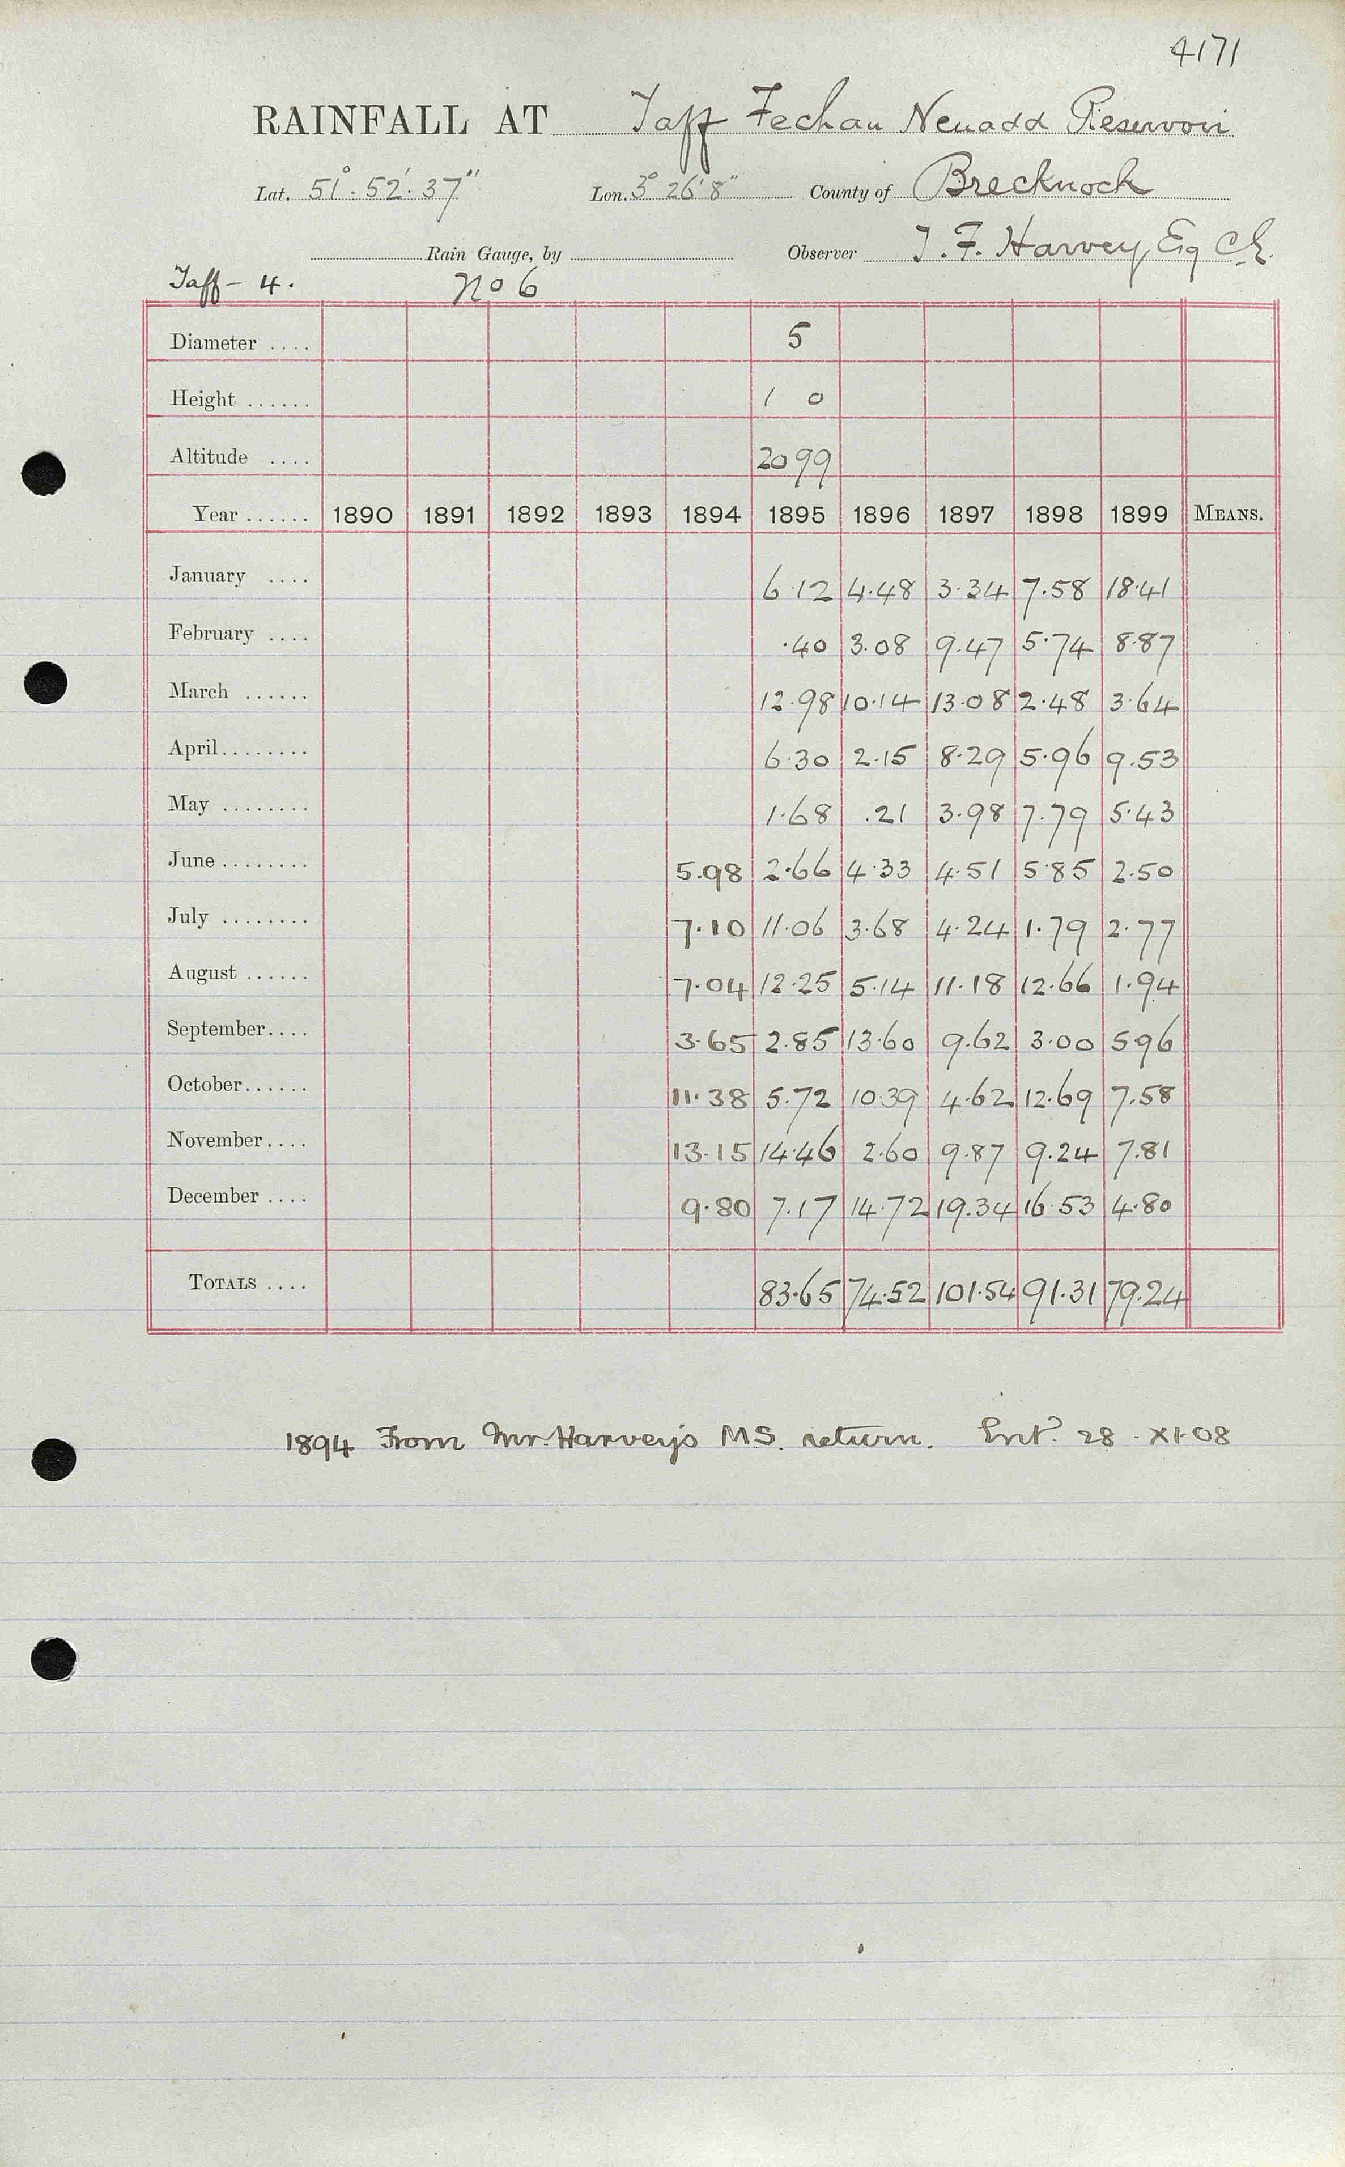 4171
RAINFALL AT Taff Fechan Neuadd Reservoir
Lat. 51° 52' 37" Lon. 3° 26' 8" County of Brecknock
Rain Gauge, by Observer T. F. Harvey, Esq C.E.
Taff - 4. No 6
Diameter .... 5
Height ...... 1 0
Altitude .... 2099
Year ...... 1890 1891 1892 1893 1894 1895 1896 1897 1898 1899 MEANS.
January .... 6.12 4.48 3.34 7.58 18.41
February .... .40 3.08 9.47 5.74 8.87
March ...... 12.98 10.14 13.08 2.48 3.64
April ........ 6.30 2.15 8.29 5.96 9.53
May ........ 1.68 .21 3.98 7.79 5.43
June ........ 5.98 2.66 4.33 4.51 5.85 2.50
July ........ 7.10 11.06 3.68 4.24 1.79 2.77
August ...... 7.04 12.25 5.14 11.18 12.66 1.94
September .... 3.65 2.85 13.60 9.62 3.00 5.96
October ...... 11.38 5.72 10.39 4.62 12.69 7.58
November .... 13.15 14.46 2.60 9.87 9.24 7.81
December .... 9.80 7.17 14.72 19.34 16.53 4.80
TOTALS .... 83.65 74.52 101.54 91.31 79.24
1894 From Mr. Harvey's MS. return. Entd. 28 . XI . 08